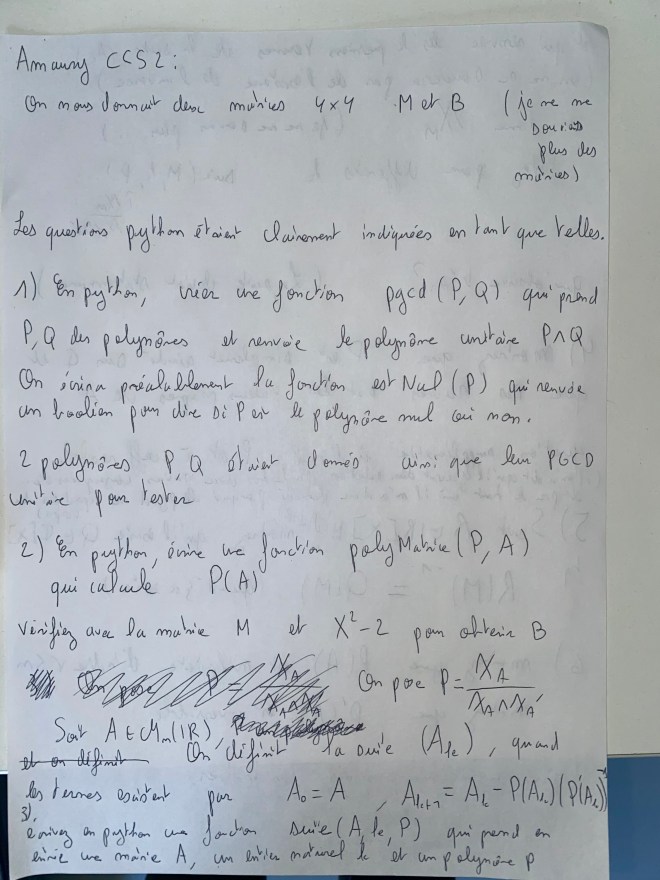 Amaury CCS2 :
On nous donnait deux matrices 4x4 M et B (je ne me
souviens
plus des
matrices)
Les questions python étaient clairement indiquées en tant que telles.
1) En python, créer une fonction pgcd (P, Q) qui prend
P, Q des polynômes et renvoie le polynôme unitaire P∧Q
On écrira préalablement la fonction est Nul (P) qui renvoie
un booléen pour dire si P est le polynôme nul ou non.
2 polynômes P, Q étaient donnés ainsi que leur PGCD
unitaire pour tester
2) En python, écrire une fonction polyMatrice (P, A)
qui calcule P(A)
Vérifiez avec la matrice M et X²-2 pour obtenir B
On pose P = χ_A / χ_A∧χ_A'
Soit A ∈ M_n(IR),
On définit la suite (A_k), quand
les termes existent par A_0 = A , A_k+1 = A_k - P(A_k)(P'(A_k))^-1
3).
écrivez en python une fonction suite (A, k, P) qui prend en
entrée une matrice A, un entier naturel k et un polynôme P